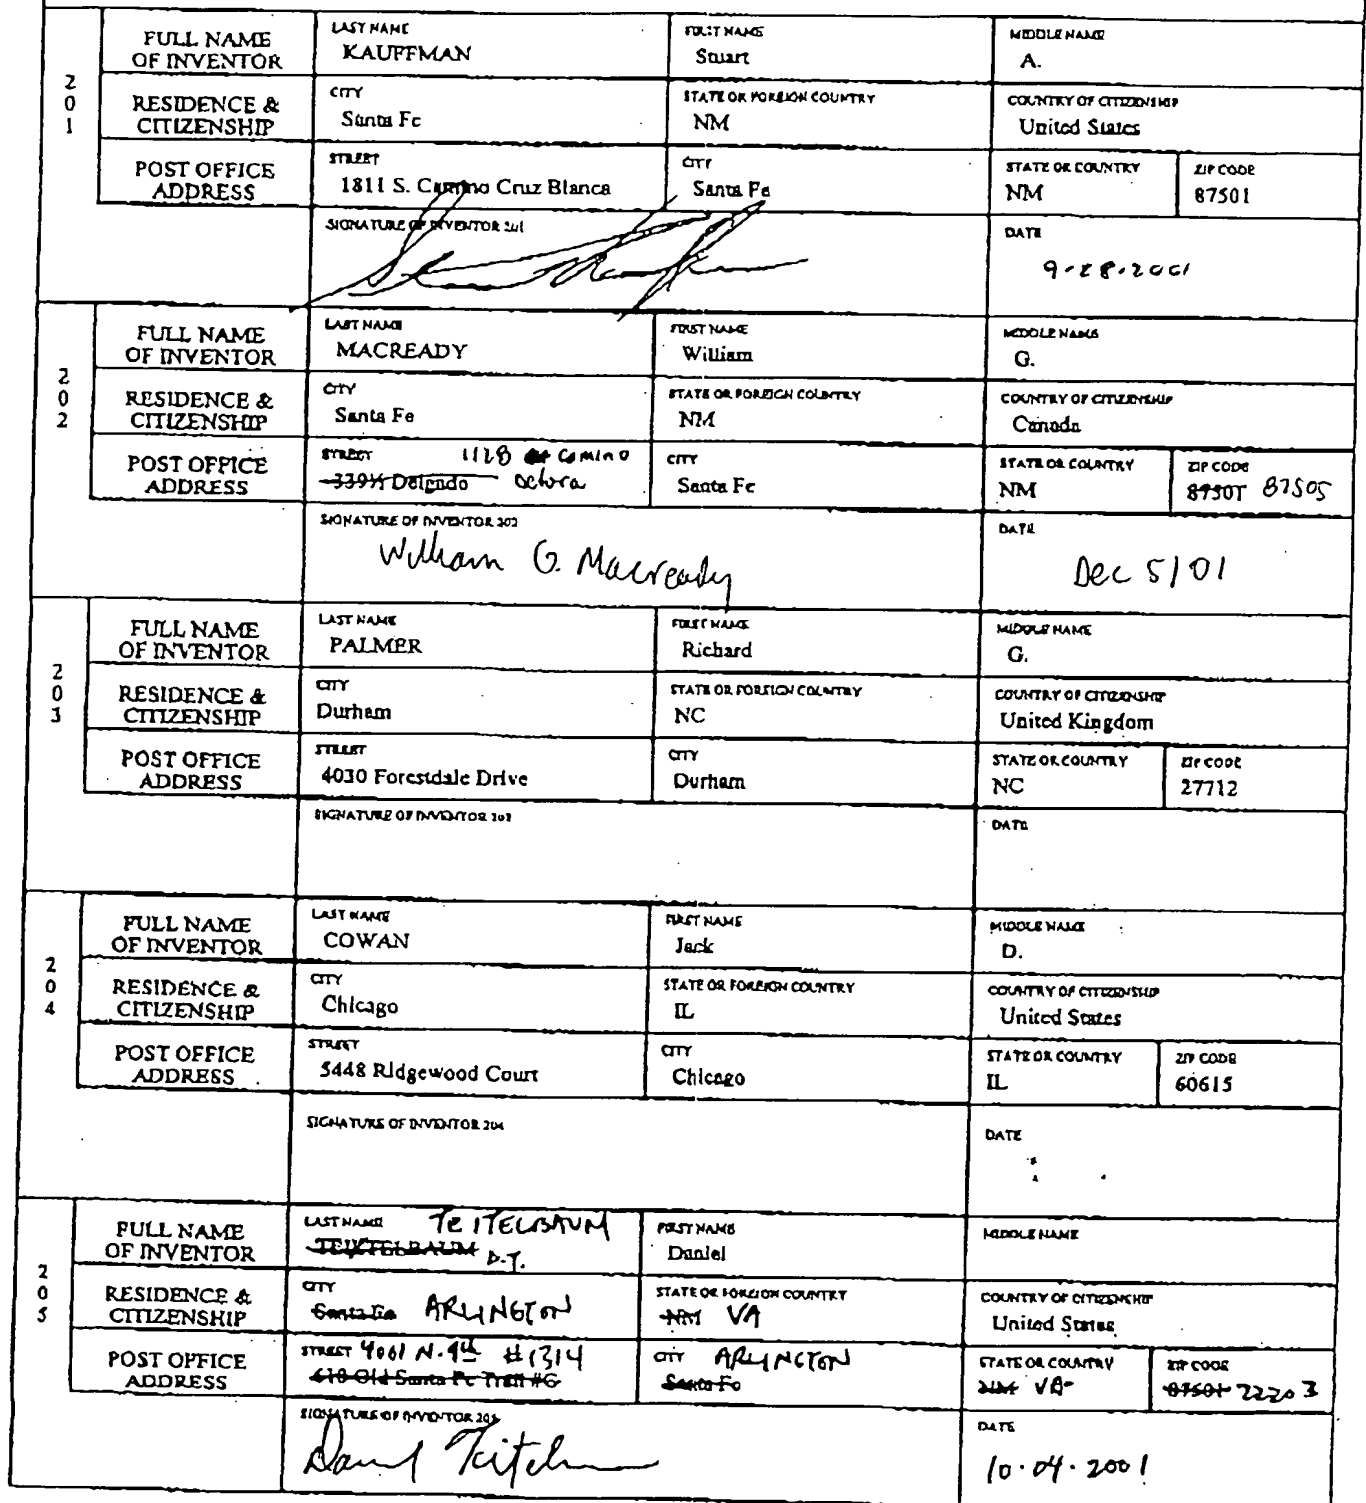 201
FULL NAME OF INVENTOR
LAST NAME
KAUFFMAN
FIRST NAME
Stuart
MIDDLE NAME
A.
RESIDENCE & CITIZENSHIP
CITY
Santa Fe
STATE OR FOREIGN COUNTRY
NM
COUNTRY OF CITIZENSHIP
United States
POST OFFICE ADDRESS
STREET
1811 S. Camino Cruz Blanca
CITY
Santa Fe
STATE OR COUNTRY
NM
ZIP CODE
87501
SIGNATURE OF INVENTOR 201
DATE
9-28-2001
202
FULL NAME OF INVENTOR
LAST NAME
MACREADY
FIRST NAME
William
MIDDLE NAME
G.
RESIDENCE & CITIZENSHIP
CITY
Santa Fe
STATE OR FOREIGN COUNTRY
NM
COUNTRY OF CITIZENSHIP
Canada
POST OFFICE ADDRESS
STREET
1128 Camino
339½ Delgado
CITY
Santa Fe
STATE OR COUNTRY
NM
ZIP CODE
87501 87505
SIGNATURE OF INVENTOR 202
William G. Macready
DATE
Dec 5/01
203
FULL NAME OF INVENTOR
LAST NAME
PALMER
FIRST NAME
Richard
MIDDLE NAME
G.
RESIDENCE & CITIZENSHIP
CITY
Durham
STATE OR FOREIGN COUNTRY
NC
COUNTRY OF CITIZENSHIP
United Kingdom
POST OFFICE ADDRESS
STREET
4030 Forestdale Drive
CITY
Durham
STATE OR COUNTRY
NC
ZIP CODE
27712
SIGNATURE OF INVENTOR 203
DATE
204
FULL NAME OF INVENTOR
LAST NAME
COWAN
FIRST NAME
Jack
MIDDLE NAME
D.
RESIDENCE & CITIZENSHIP
CITY
Chicago
STATE OR FOREIGN COUNTRY
IL
COUNTRY OF CITIZENSHIP
United States
POST OFFICE ADDRESS
STREET
5448 Ridgewood Court
CITY
Chicago
STATE OR COUNTRY
IL
ZIP CODE
60615
SIGNATURE OF INVENTOR 204
DATE
205
FULL NAME OF INVENTOR
LAST NAME
TEITELBAUM
D.T.
FIRST NAME
Daniel
MIDDLE NAME
RESIDENCE & CITIZENSHIP
CITY
Santa Fe ARLINGTON
STATE OR FOREIGN COUNTRY
NM VA
COUNTRY OF CITIZENSHIP
United States
POST OFFICE ADDRESS
STREET 4001 N. 9th #1314
618 Old Santa Fe Trail #6
CITY ARLINGTON
Santa Fe
STATE OR COUNTRY
NM VA
ZIP CODE
87501 22203
SIGNATURE OF INVENTOR 205
DATE
10.04.2001